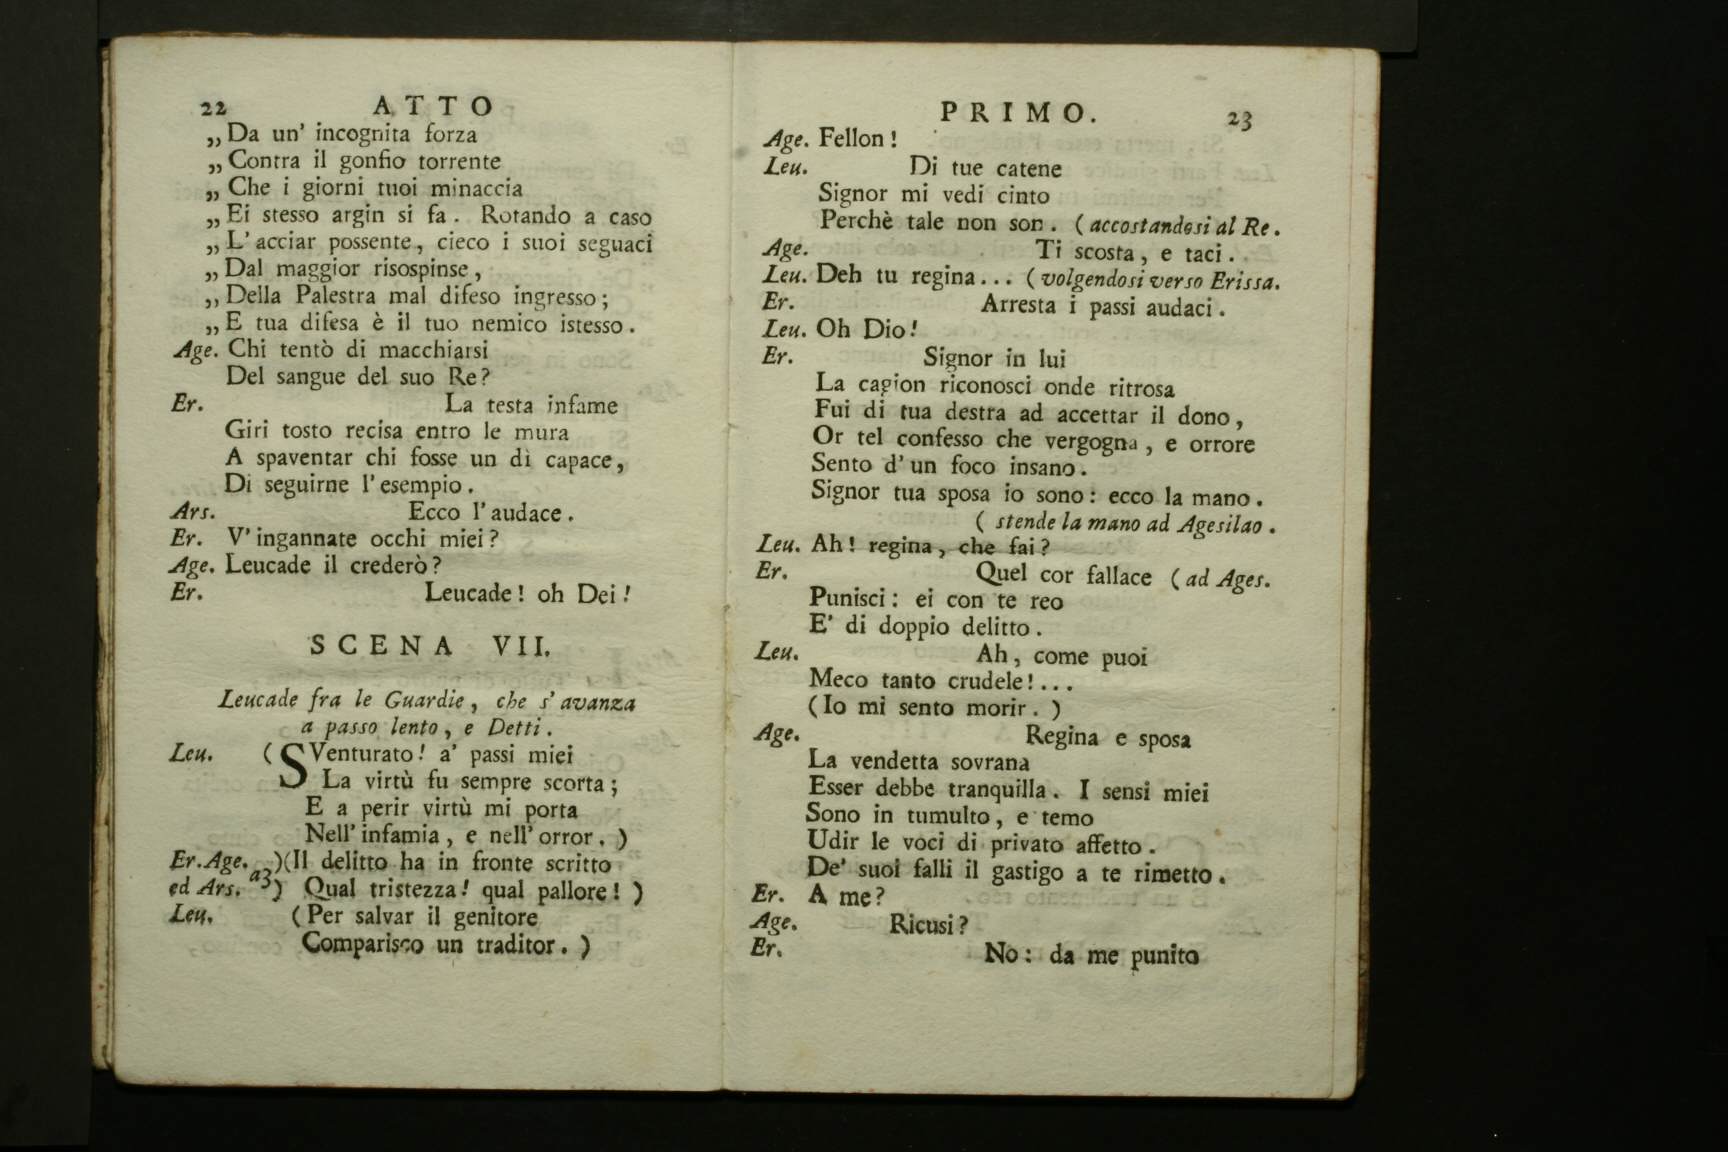 22 ATTO
„Da un' incognita forza
„Contra il gonfio torrente
„Che i giorni tuoi minaccia
„Ei stesso argin si fa. Rotando a caso
„L'acciar possente, cieco i suoi seguaci
„Dal maggior risospinse,
„Della Palestra mal difeso ingresso;
„E tua difesa è il tuo nemico istesso.
Age. Chi tentò di macchiarsi
Del sangue del suo Re?
Er. La testa infame
Giri tosto recisa entro le mura
A spaventar chi fosse un dì capace,
Di seguirne l'esempio.
Ars. Ecco l'audace.
Er. V'ingannate occhi miei?
Age. Leucade il crederò?
Er. Leucade! oh Dei!
SCENA VII.
Leucade fra le Guardie, che s'avanza
a passo lento, e Detti.
Leu. (SVenturato! a' passi miei
La virtù fu sempre scorta;
E a perir virtù mi porta
Nell'infamia, e nell'orror.)
Er. Age. )(Il delitto ha in fronte scritto
ed Ars. a3) Qual tristezza! qual pallore!)
Leu. (Per salvar il genitore
Comparisco un traditor.)
PRIMO. 23
Age. Fellon!
Leu. Di tue catene
Signor mi vedi cinto
Perchè tale non son. (accostandosi al Re.
Age. Ti scosta, e taci.
Leu. Deh tu regina... (volgendosi verso Erissa.
Er. Arresta i passi audaci.
Leu. Oh Dio!
Er. Signor in lui
La cagion riconosci onde ritrosa
Fui di tua destra ad accettar il dono,
Or tel confesso che vergogna, e orrore
Sento d'un foco insano.
Signor tua sposa io sono: ecco la mano.
(stende la mano ad Agesilao.
Leu. Ah! regina, che fai?
Er. Quel cor fallace (ad Ages.
Punisci: ei con te reo
E' di doppio delitto.
Leu. Ah, come puoi
Meco tanto crudele!...
(Io mi sento morir.)
Age. Regina e sposa
La vendetta sovrana
Esser debbe tranquilla. I sensi miei
Sono in tumulto, e temo
Udir le voci di privato affetto.
De' suoi falli il gastigo a te rimetto.
Er. A me?
Age. Ricusi?
Er. No: da me punito